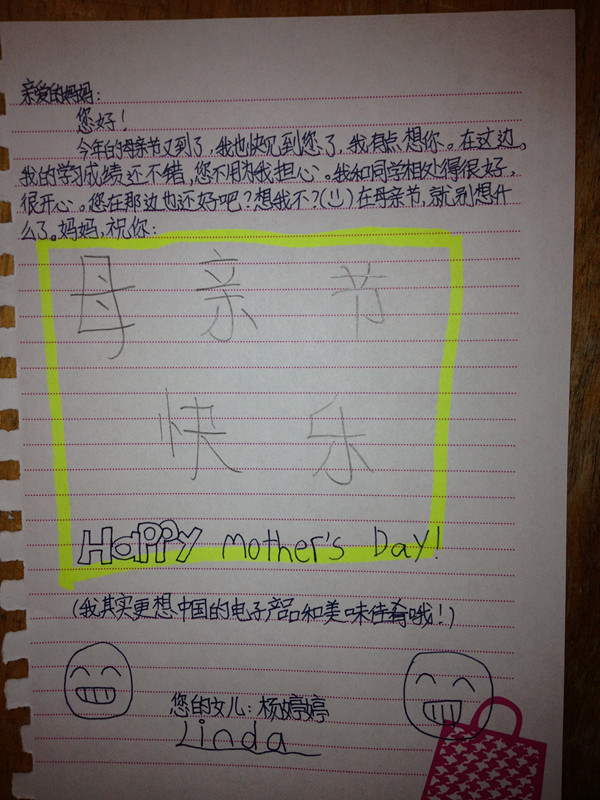 亲爱的妈妈：
您好！
今年的母亲节又到了，我也快见到您了，我有点想你。在这边，
我的学习成绩还不错，您不用为我担心。我和同学相处得很好，
很开心。您在那边也还好吧？想我不？(ن)在母亲节，就别想什
么了。妈妈，祝你：
母亲节
快乐
Happy mother's Day!
(我其实更想中国的电子产品和美味佳肴哦！)
您的女儿：杨婷婷
Linda